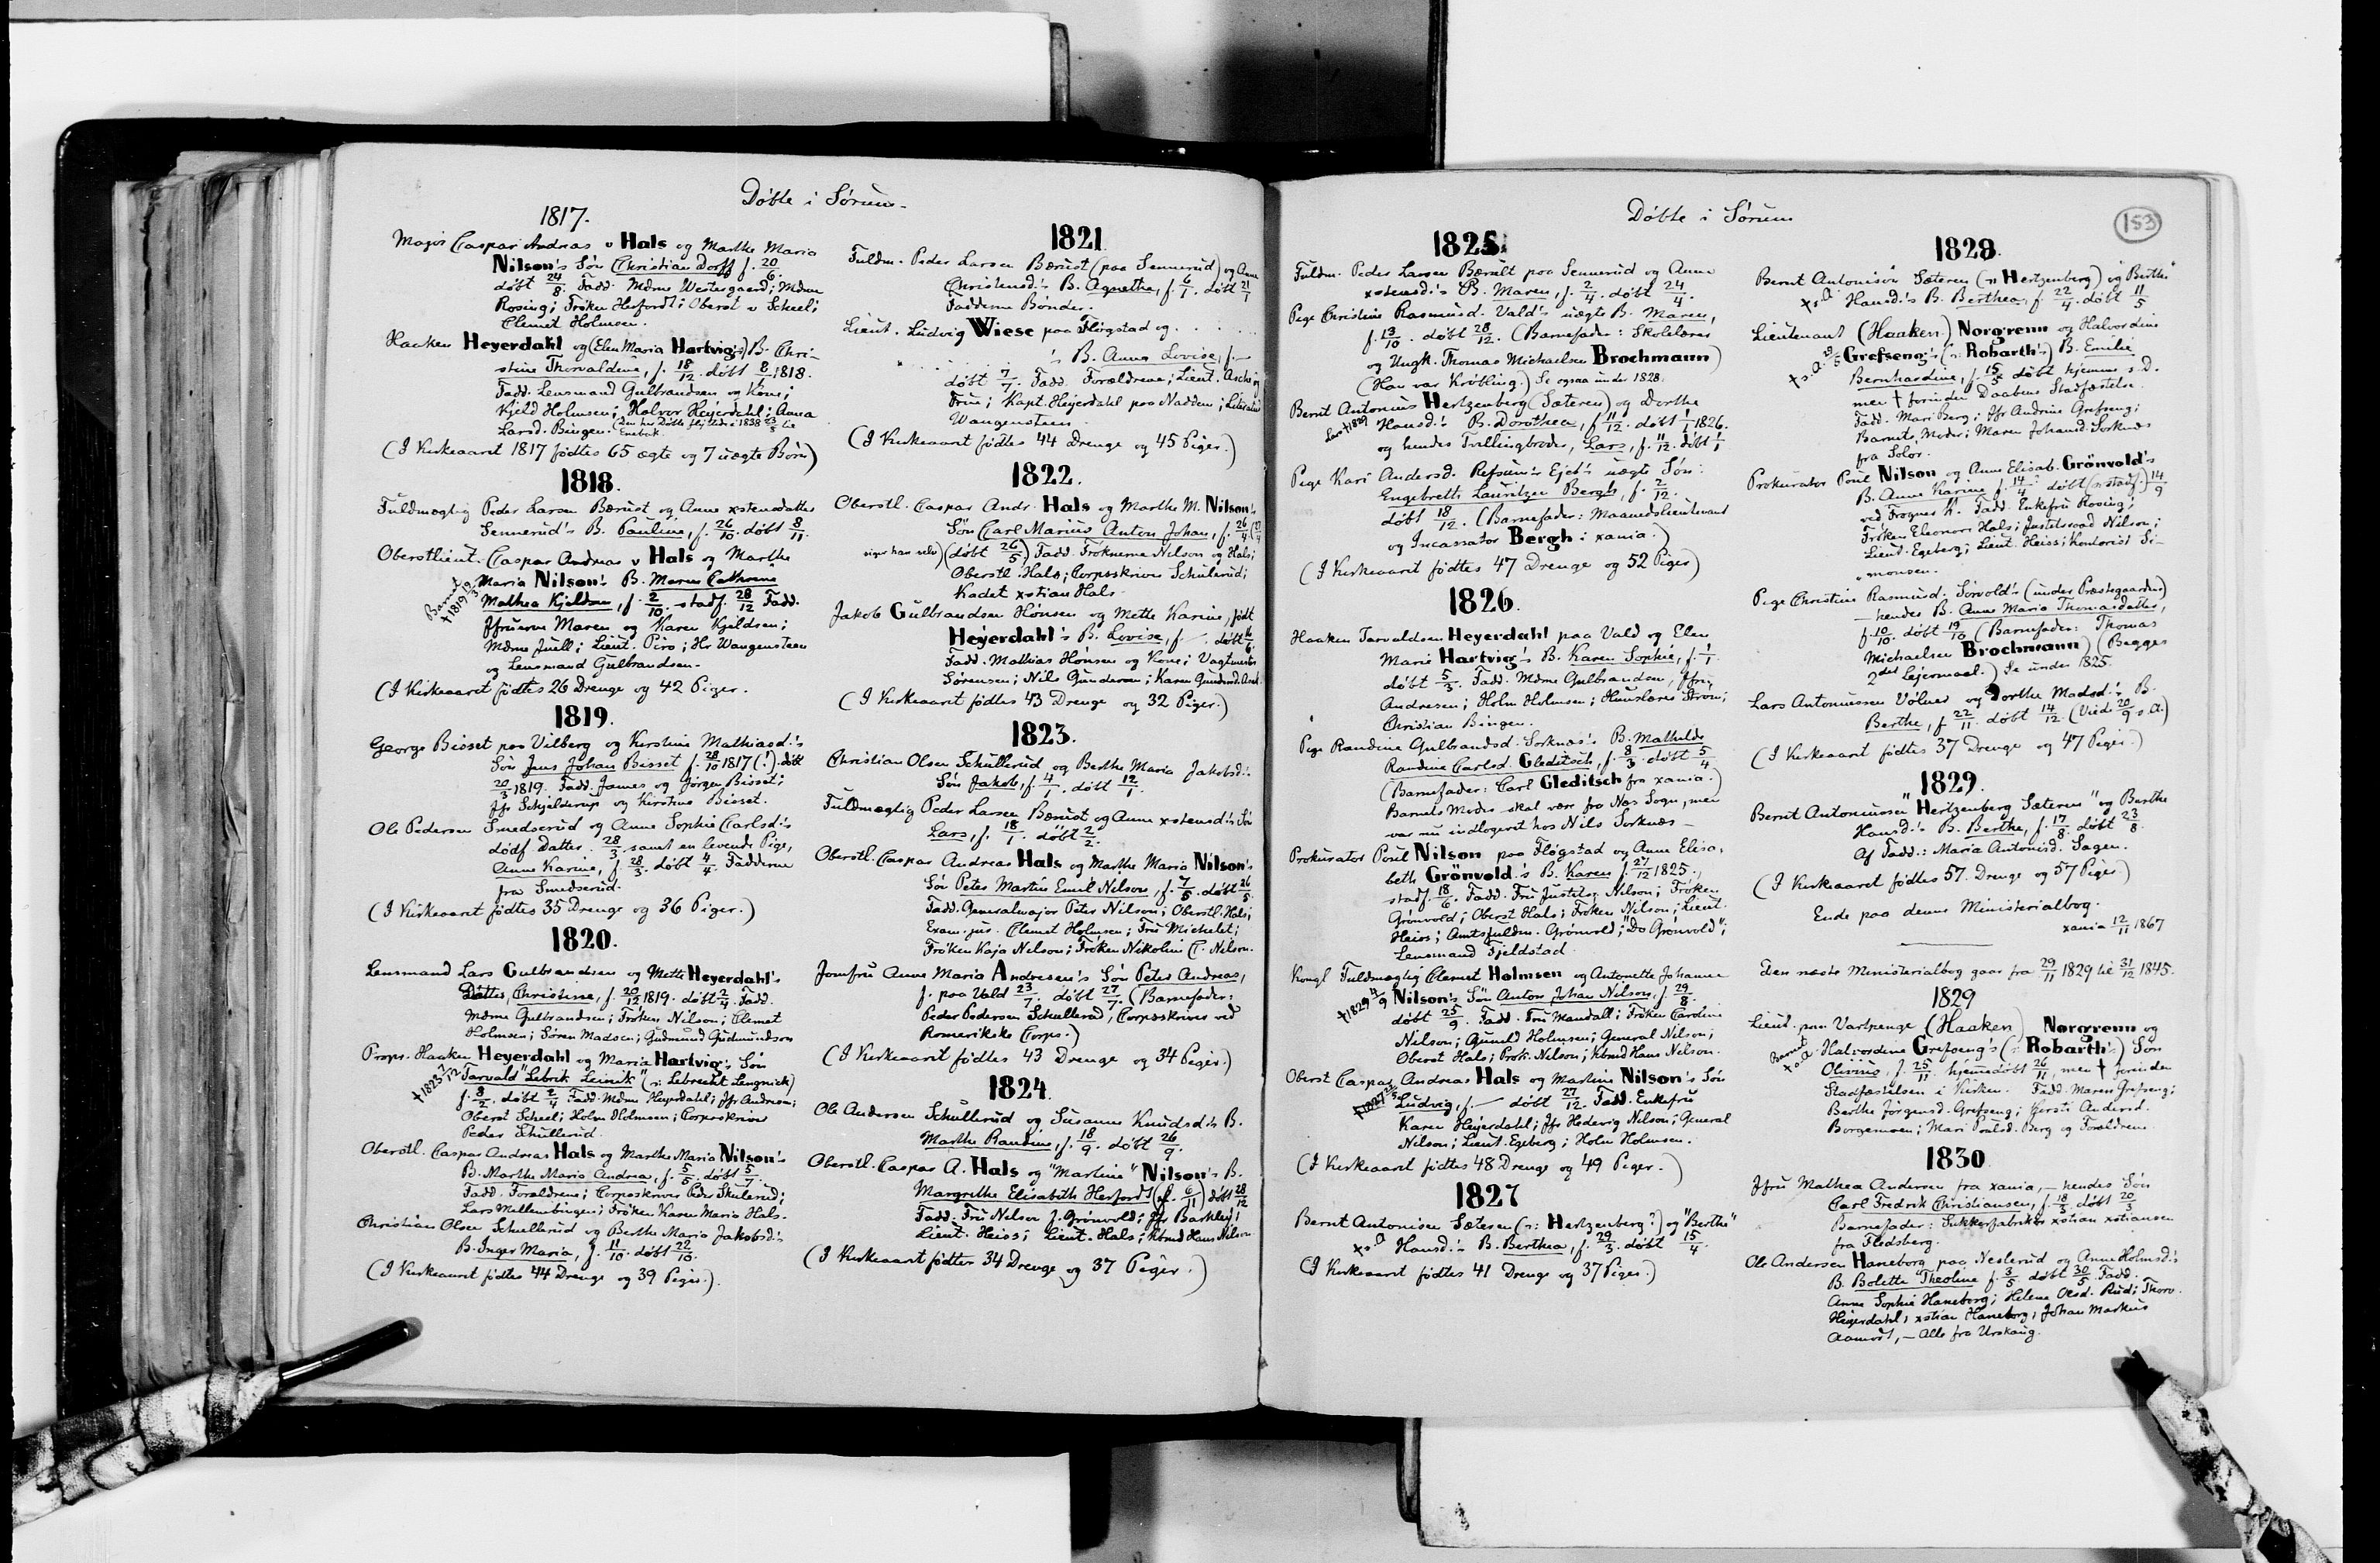 Døbte i Sørum.
1817.
Major Caspar Andreas v Hals og Marthe Maria
Nilson's Søn Christian Dorff f. 20/6.
døbt 24/8. Fadd. Mdme Westergaard; Mdme
Rosing; Frøken Herfordt; Oberst v Scheel;
Clemet Holmsen.
Haaken Heyerdahl og (Elen Maria Hartvig's) B. Chri-
stine Thorvaldine, f. 18/12. døbt 8/1818.
Fadd. Lensmand Gulbrandsen og Kone;
Kjeld Holmsen; Halvor Heyerdahl; Anna
Larsd. Bingen. (Den her Døbte flyttede i 1838 23/5 til
Enebak.
(I Kirkeaaret 1817 fødtes 65 ægte og 7 uægte Børn)
1818.
Fuldmægtig Peder Larsen Bærust og Anne xstensdatter
Sennerud's B. Pauline, f. 26/10. døbt 8/11.
Oberstlieut. Caspar Andreas v Hals og Marthe
Maria Nilson's B. Maren Cathrine
Barnet † 1819 19/3
Mathea Kjeldsen, f. 2/10. stadf. 28/12 Fadd.
Jfruerne Maren og Karen Kjeldsen;
Mdme Juell; Lieut. Piro; Hr Wangensteen
og Lensmand Gulbrandsen.
(I Kirkeaaret fødtes 26 Drenge og 42 Piger.
1819.
George Bisset paa Vilberg og Kirstine Mathiasd.'s
Søn Jens Johan Bisset f. 28/10 1817 (!). døbt
20/3 1819. Fadd. James og Jørgen Bisset;
Jfr Schjelderup og Kirstine Bisset.
Ole Pedersen Smedserud og Anne Sophie Carlsd.'s
dødf. Datter 28/3 samt en levende Pige,
Anne Karine, f. 28/3. døbt 4/4. Fadderne
fra Smedserud.
(I Kirkeaaret fødtes 35 Drenge og 36 Piger.)
1820.
Lensmand Lars Gulbrandsen og Mette Heyerdahl's
Datter, Christine, f. 20/12 1819. døbt 2/4. Fadd.
Mdme Gulbrandsen; Frøken Nilson; Clemet
Holmsen; Søren Madsen; Gudmund Gudmundson
Propr. Haaken Heyerdahl og Maria Hartvig's Søn
† 1823 7/12
Tarvald "Lebrik Leinik" (ɔ: Lebrecht Lengnick)
f. 8/2. døbt 2/4 Fadd. Mdme Heyerdahl; Jfr Andresen;
Oberst Scheel; Holm Holmsen; Corpsskriver
Peder Schullerud.
Oberstl. Caspar Andreas Hals og Marthe Maria Nilson's
B. Marthe Maria Andrea, f. 5/5. døbt 5/7.
Fadd. Forældrene; Corpsskriver Peder Skulerud;
Lars Mellembingen; Frøken Karen Maria Hals.
Christian Olsen Schullerud og Berthe Maria Jakobsd.'s
B. Inger Maria, f. 11/10. døbt 22/10.
(I Kirkeaaret fødtes 44 Drenge og 39 Piger).
1821
Fuldm. Peder Larsen Bærust (paa Sennerud) og Anne
Christensd.'s B. Agnethe, f. 6/1. døbt 21/1
Fadderne Bønder.
Lieut. Ludvig Wiese paa Fløgstad og . . . .
. . . . 's B. Anna Lovise, f. —
døbt 7/7. Fadd. Forældrene; Lieut. Asch og
Frue; Kapt. Heyerdahl paa Nadden;
Wangensteen
(I Kirkeaaret fødtes 44 Drenge og 45 Piger.)
1822.
Oberstl. Caspar Andr. Hals og Marthe M. Nilson's
Søn Carl Marius Anton Johan, f. 26/4
siger han selv) (døbt 26/5.) Fadd. Frøknerne Nilson og Hals;
Oberstl. Hals; Corpsskriver Schulerud;
Kadet xstian Hals.
Jakob Gulbrandsen Hønsen og Mette Karine, født
Heyerdahl's B. Lovise, f. — døbt
Fadd. Mathias Hønsen og Kone; Vagtmester
Sørensen; Nils Gundersen; Karen Gundersd.
(I Kirkeaaret fødtes 43 Drenge og 32 Piger.)
1823.
Christian Olsen Schullerud og Berthe Maria Jakobsd.'s
Søn Jakob, f. 4/1. døbt 12/1.
Fuldmægtig Peder Larsen Bærust og Anne xstensd.'s Søn
Lars, f. 18/1. døbt 2/2.
Oberstl. Caspar Andreas Hals og Marthe Maria Nilson's
Søn Peter Martin Emil Nilson, f. 7/5. døbt 26/5.
Fadd. Generalmajor Peter Nilson; Oberstl. Hals;
Exam. jur. Clemet Holmsen; Fru Michelet;
Frøken Kaja Nilson; Frøken Nikoline C. Nilson.
Jomfru Anne Maria Andresen's Søn Peter Andreas,
f. paa Vald 23/7. døbt 27/7. (Barnefader:
Peder Pedersen Schullerud, Corpsskriver ved
Romerikske Corps.)
(I Kirkeaaret fødtes 43 Drenge og 34 Piger.)
1824.
Ole Andersen Schullerud og Susanne Knudsd.'s B.
Marthe Randine, f. 18/9. døbt 26/9.
Oberstl. Caspar A. Hals og "Martine" Nilson's B.
Margrethe Elisabeth Herfordt (f. 6/11) døbt 28/12
Fadd. Fru Nilson f. Grönvold; Jfr Barkley;
Lieut. Heiss; Lieut. Hals; Kbmd Hans Nilson
(I Kirkeaaret fødtes 34 Drenge og 37 Piger.)
Døbte i Sørum
153
1825.
Fuldm. Peder Larsen Bærult paa Sennerud og Anne
xstensd.'s B. Maren, f. 2/4. døbt 24/4.
Pige Christine Rasmusd. Vald's uægte B. Maren,
f. 13/10. døbt 28/12. (Barnefader: Skolelærer
og Ungk. Thomas Michaelsen Brochmann)
(Han var Krøbling.) Se ogsaa under 1828.
Bernt Antonius Hertzenberg (Sæteren) og Dorthe
Lars † 1829
Hansd.'s B. Dorothea, f. 11/12. døbt 1/1 1826.
og hendes Tvillingbroder, Lars, f. 11/12. døbt 1/1
Pige Kari Andersd. Refsum's Ejet's uægte Søn:
Engebrett Lauritzen Bergh, f. 2/12.
døbt 18/12. (Barnefader: Maanedslieutenant
og Incassator Bergh i xania.)
(I Kirkeaaret fødtes 47 Drenge og 52 Piger)
1826.
Haaken Tarvaldsen Heyerdahl paa Vald og Elen
Marie Hartvig's B. Karen Sophie, f. 1/1.
døbt 5/3. Fadd. Mdme Gulbrandsen, Jfr.
Andresen; Holm Holmsen; Huuslærer Strøm;
Christian Bingen.
Pige Randine Gulbrandsd. Sorknæs's B. Mathilde
Randine Carlsd. Gleditsch, f. 8/3. døbt 5/4
(Barnefader: Carl Gleditsch fra xania.)
Barnets Moder skal være fra Næs Sogn, men
var nu indlogeret hos Nils Sorknæs —
Prokurator Poul Nilson paa Fløgstad og Anne Elisa-
beth Grönvold's B. Karen f. 27/12 1825.,
stadf. 18/6. Fadd. Fru Justitsr. Nilson; Frøken
Grønvold; Oberst Hals; Frøken Nilson; Lieut.
Heiss; Amtsfuldm. Grönvold; "Do Grönvold";
Lensmand Fjeldstad
Kongl. Fuldmægtig Clemet Holmsen og Antonette Johanne
† 1829 4/9
Nilson's Søn Anton Johan Nilson, f. 29/8.
døbt 25/9. Fadd. Fru Mandall; Frøken Caroline
Nilson; Gunild Holmsen; General Nilson;
Oberst Hals; Prok. Nilson; Kbmd Hans Nilson.
Oberst Caspar Andreas Hals og Martine Nilson's Søn
† 1827
Ludvig, f. — døbt 27/12. Fadd. Enkefru
Karen Heyerdahl; Jfr Hedevig Nilson; General
Nilson; Lieut. Egeberg; Holm Holmsen.
(I Kirkeaaret fødtes 48 Drenge og 49 Piger.)
1827
Bernt Antonisen Sæteren (ɔ: Hertzenberg?) og "Berthe"
† s. A
Hansd.'s B. Berthea, f. 29/3. døbt 15/4.
(I Kirkeaaret fødtes 41 Drenge og 37 Piger.)
1828.
Bernt Antonisøn Sæteren (ɔ: Hertzenberg) og "Berthe"
† s. A.
Hansd.'s B. Berthea, f. 22/4. døbt 11/5
Lieutenant (Haaken) Norgrenn og Halvordine
† s. A.
Grefseng's (ɔ: Robarth's) B. Emilie
Bernhardine, f. 15/5 døbt hjemme s. D.
men † forinden Daabens Stadfæstelse.
Fadd. Mari Berg; Jfr Andrine Grefseng;
Barnets Moder; Maren Johansd. Sorknæs
fra Solør.
Prokurator Poul Nilson og Anne Elisab. Grönvold's
B. Anne Karine f. 14/4. døbt (ɔ: stadf.) 14/9
ved Frogner K. Fadd. Enkefru Rosing;
Frøken Eleonore Hals; Justitsraad Nilson;
Lieut. Egeberg; Lieut. Heiss; Kontorist Si-
monsen.
Pige Christine Rasmusd. Sørvold's (under Præstegaarden)
— hendes B. Anne Maria Thomasdatter,
f. 10/10. døbt 19/10 (Barnefader: Thomas
Michaelsen Brochmann) (Begges
2det Lejermaal.) Se under 1825.
Lars Antoniussen Vølner og Dorthe Madsd.'s B.
Berthe, f. 22/11. døbt 14/12. (Viede 20/9 s. A.)
(I Kirkeaaret fødtes 37 Drenge og 47 Piger.)
1829.
Bernt Antoniussen "Hertzenberg Sæteren" og Berthe
Hansd.'s B. Berthe, f. 17/8. døbt 23/8.
Af Fadd.: Maria Antonisd. Sagen.
(I Kirkeaaret fødtes 57 Drenge og 57 Piger.)
Ende paa denne Ministerialbog.
xania 12/11 1867
Den næste Ministerialbog gaar fra 29/11 1829 til 31/12 1845.
1829
Lieut. paa Vartpenge (Haaken) Norgrenn og
Barnet † s. A.
Halvordine Grefseng's (ɔ: Robarth's) Søn
Olivius, f. 25/11. hjemmedøbt 26/11, men † forinden
Stadfæstelsen i Kirken. Fadd. Maren Grefseng;
Berthe Jørgensd. Grefseng; Kersti Andersd.
Borgemoen; Mari Poulsd. Berg og Forældrene.
1830
Jfru Mathea Andersen fra xania, — hendes Søn
Carl Fredrik Christiansen, f. 18/3. døbt 20/3
Barnefader: Sukkerfabrikør xstian xstiansen
fra Flodsberg.
Ole Andersen Haneborg paa Neslerud og Anne Holmsd.'s
B. Bolette Theoline f. 3/5 døbt 30/5. Fadd.
Anne Sophie Haneborg; Helene Olsd. Rud; Thorv.
Heyerdahl, xstian Haneborg, Johan Markus
Aamodt, — Alle fra Urskaug.